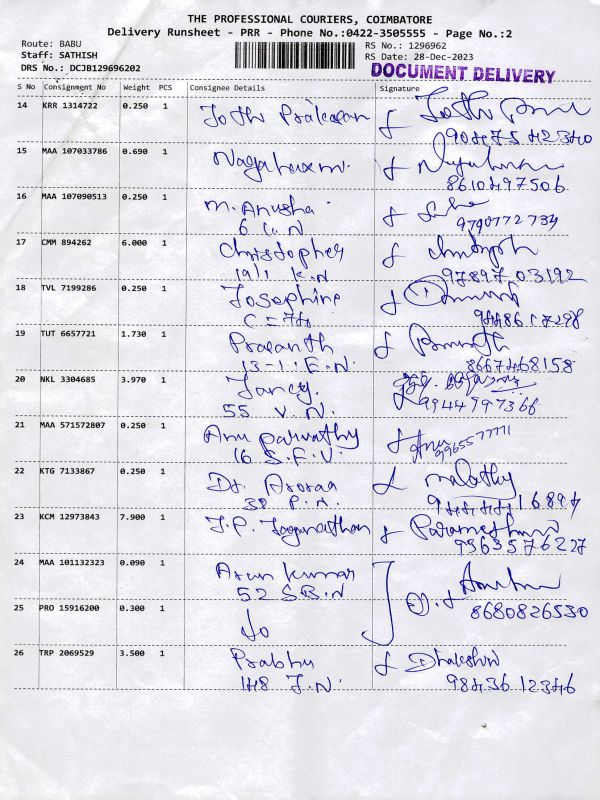 THE PROFESSIONAL COURIERS, COIMBATORE
Delivery Runsheet - PRR - Phone No.:0422-3505555 - Page No.:2
Route: BABU
RS No.: 1296962
Staff: SATHISH
RS Date: 28-Dec-2023
DRS No.: DCJB129696202
DOCUMENT DELIVERY
S No Consignment No Weight PCS Consignee Details Signature
14 KRR 1314722 0.250 1 Jothi Prakasan
15 MAA 107033786 0.690 1
8610497506
16 MAA 107090513 0.250 1 M. Anusha
9790772734
17 CMM 894262 6.000 1 Christopher
19/1 K.N
9789703192
18 TVL 7199286 0.250 1 Josephine
C = 74
19 TUT 6657721 1.730 1 Prasanth
13-1. E.N. 8667468158
20 NKL 3304685 3.970 1 Jancy.
55 V.N. 9944797366
21 MAA 571572807 0.250 1 Anu parvathy Anu
16 S.F.V. 9965577771
22 KTG 7133867 0.250 1 Dr. malathy
38 P.N.
23 KCM 12973843 7.900 1 J.P. Jaganathan
9363576227
24 MAA 101132323 0.090 1 Arun kumar
52 S.B.N
8680826530
25 PRO 15916200 0.300 1 do
26 TRP 2069529 3.500 1 Prabhu
148 J.N. 9843612346